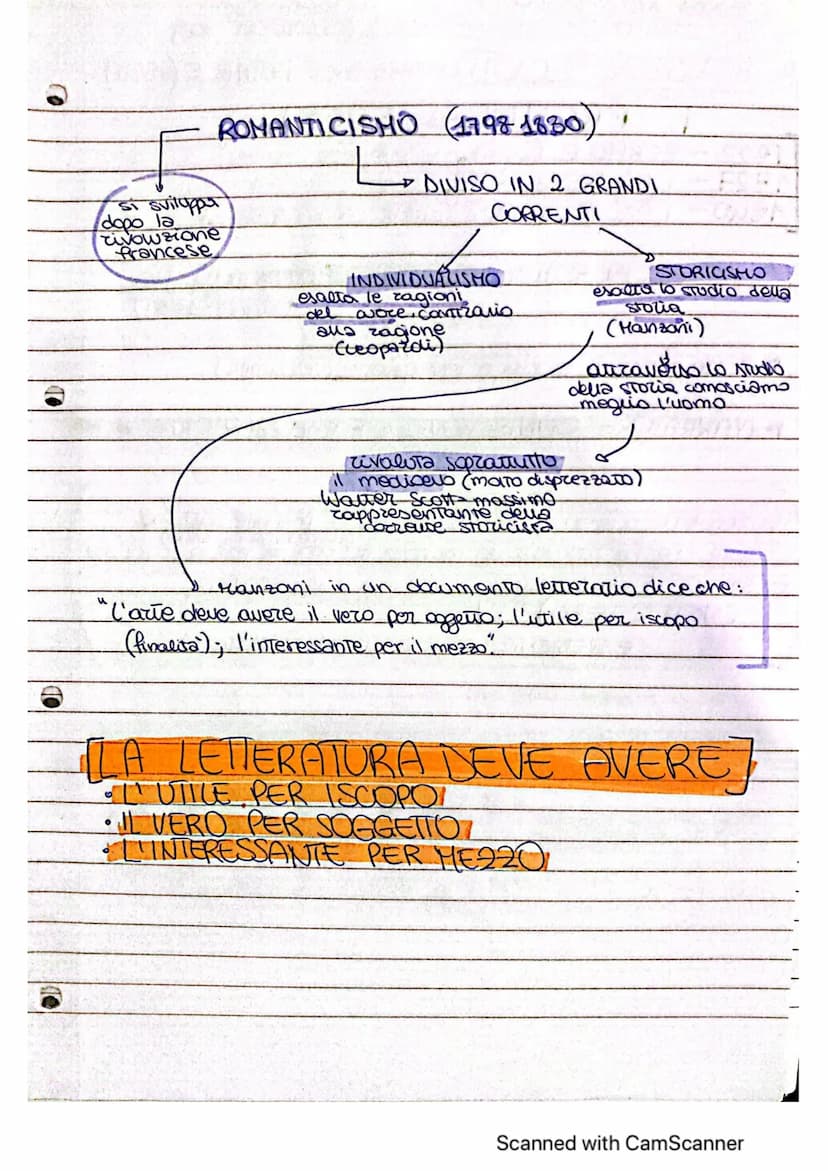 ROMANTICISMO (1798-1830)
DIVISO IN 2 GRANDI
CORRENTI
si sviluppa
dopo la
rivoluzione
francese
INDIVIDUALISMO
esalta le ragioni
del cuore, contrario
alla ragione
(Leopardi)
STORICISMO
esalta lo studio della
storia
(Manzoni)
attraverso lo studio
della storia conosciamo
meglio l'uomo
rivaluta sopratutto
il medioevo (molto disprezzato)
Walter Scott massimo
rappresentante della
corrente storicista
Manzoni in un documento letterario dice che:
"L'arte deve avere il vero per oggetto; l'utile per iscopo
(finalità); l'interessante per il mezzo"
[LA LETTERATURA DEVE AVERE]
• L'UTILE PER ISCOPO
• IL VERO PER SOGGETTO
• L'INTERESSANTE PER MEZZO
Scanned with CamScanner